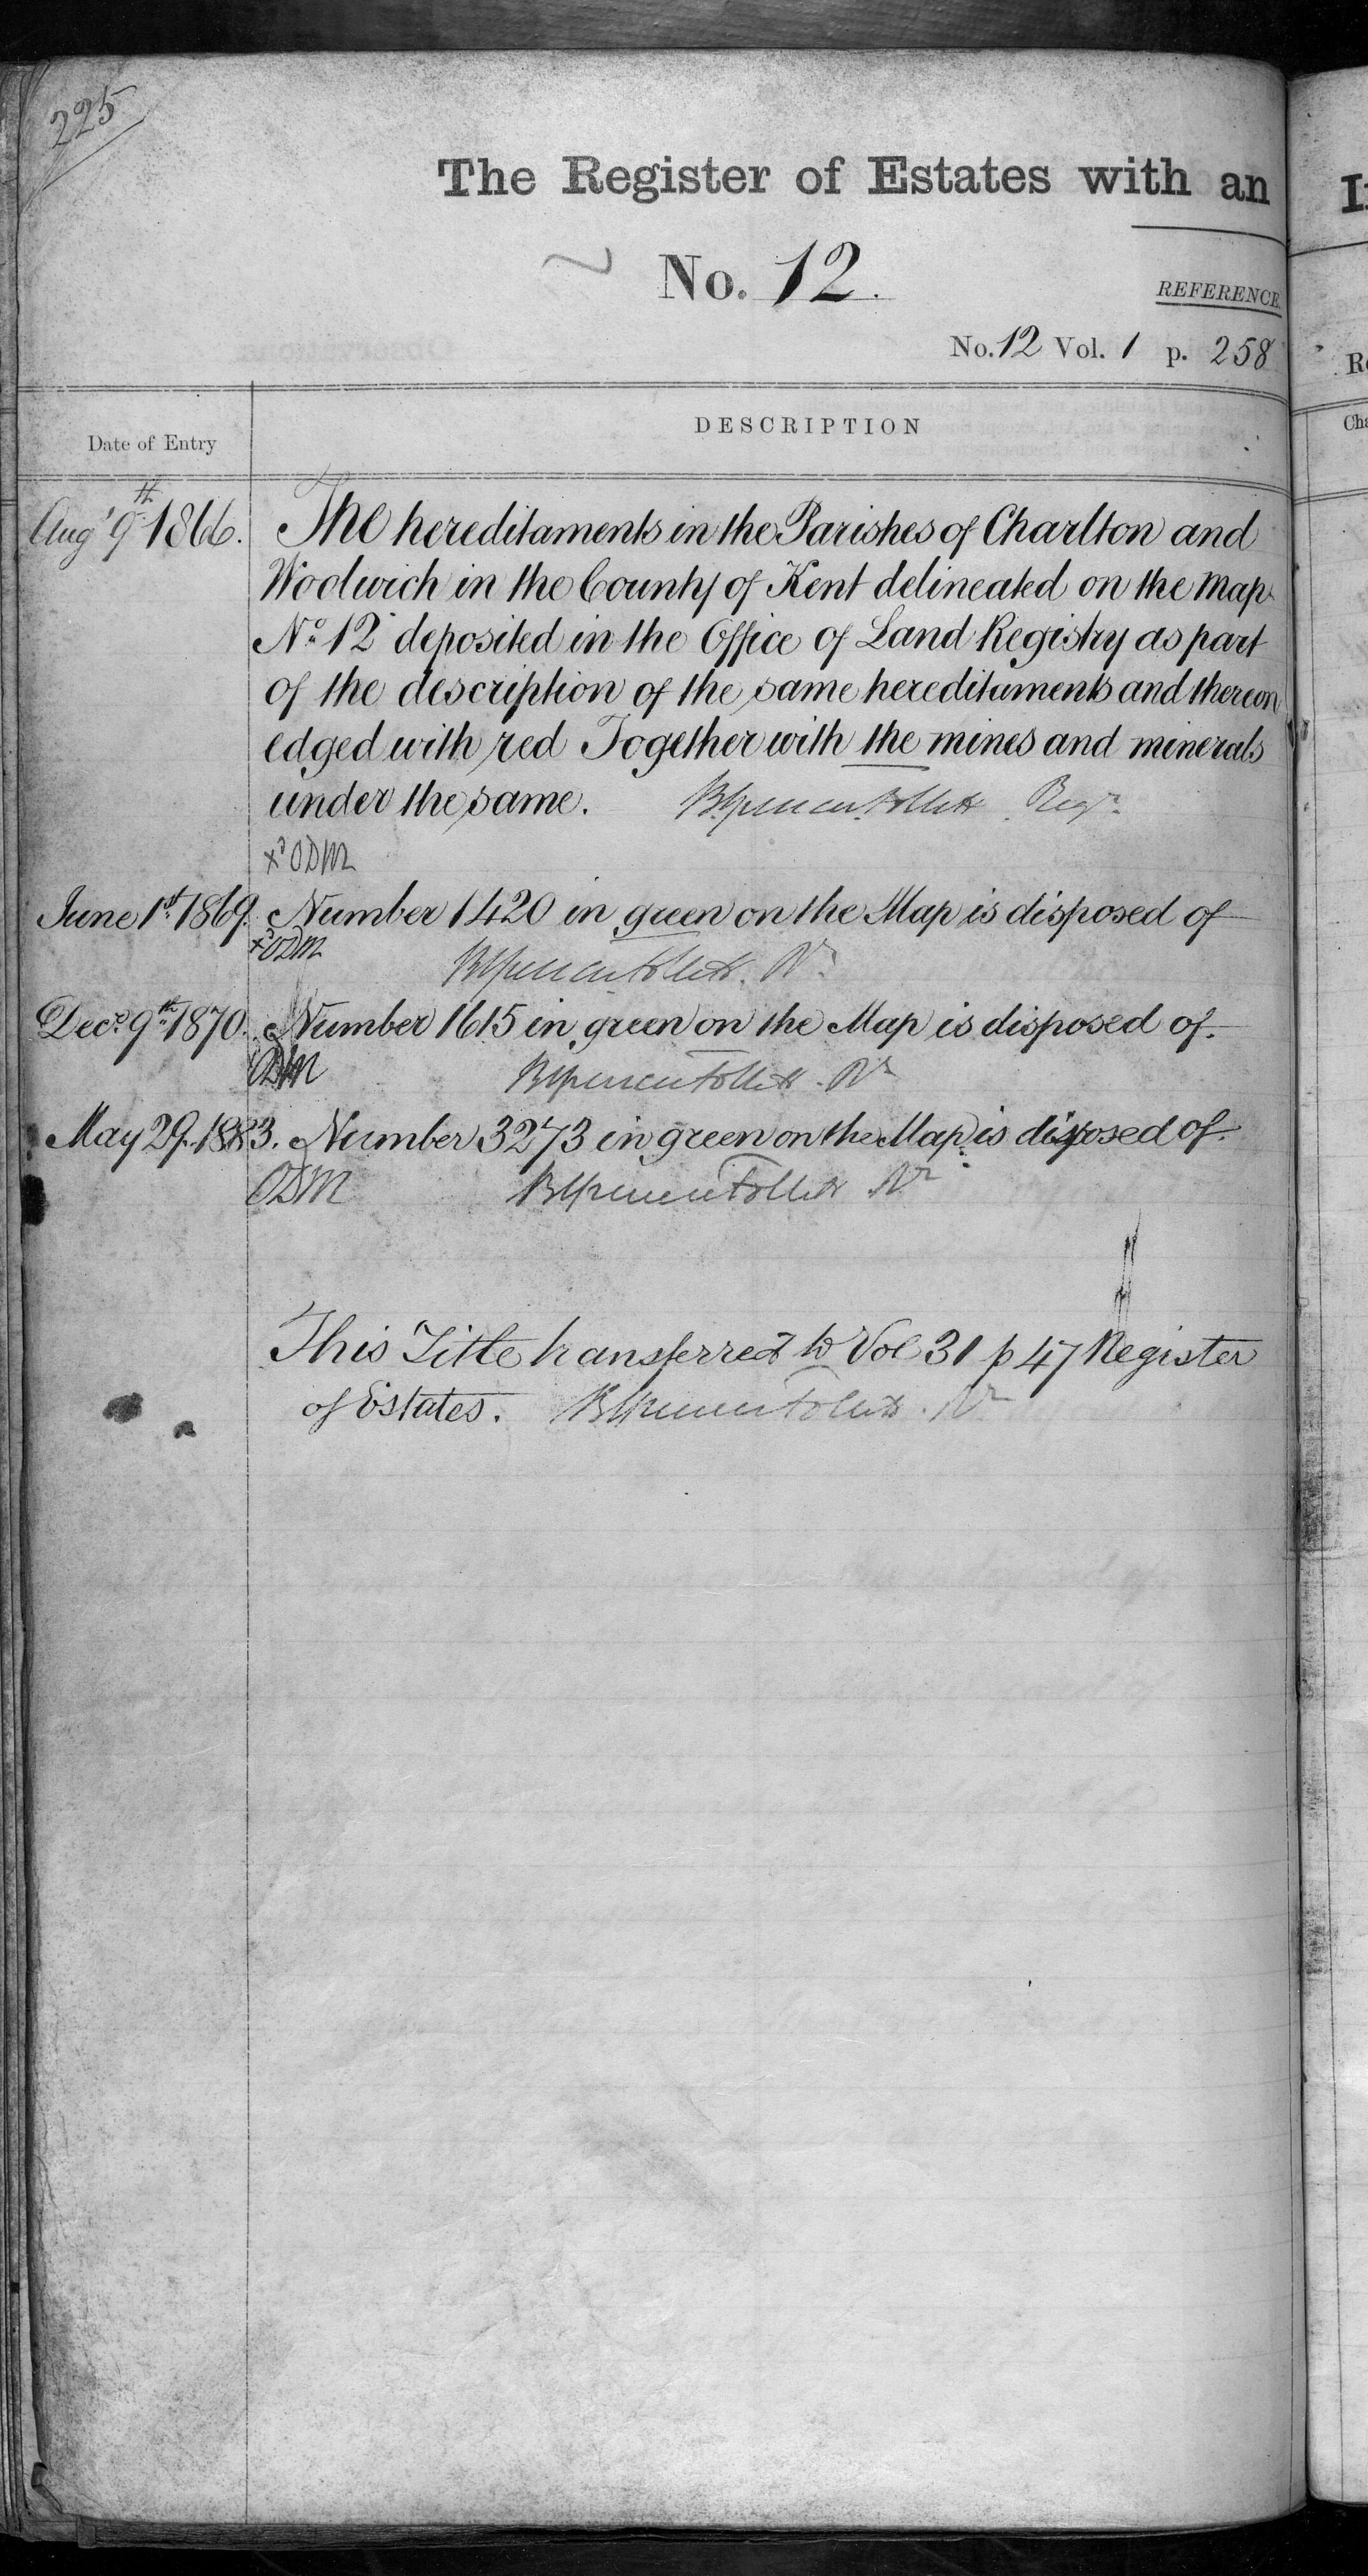 225
The Register of Estates with an
No. 12.
REFERENCE.
No. 12 Vol. 1 p. 258
Date of Entry
DESCRIPTION
Augt 9th 1866. The hereditaments in the Parishes of Charlton and
Woolwich in the County of Kent delineated on the Map
No. 12 deposited in the Office of Land Registry as part
of the description of the same hereditaments and thereon
edged with red Together with the mines and minerals
under the same. Brent Spencer Follett Regr.
xd ODM
June 1st 1869. Number 1420 in green on the Map is disposed of
xd ODM Brent Spencer Follett. Rr.
Decr. 9th 1870. Number 1615 in green on the Map is disposed of.
ODM Brent Spencer Follett. Rr
May 29. 1883. Number 3273 in green on the Map is disposed of.
ODM Brent Spencer Follett Rr
This Title transferred to Vol 31 p 47 Register
of Estates. Brent Spencer Follett. Rr
I
R
Cha